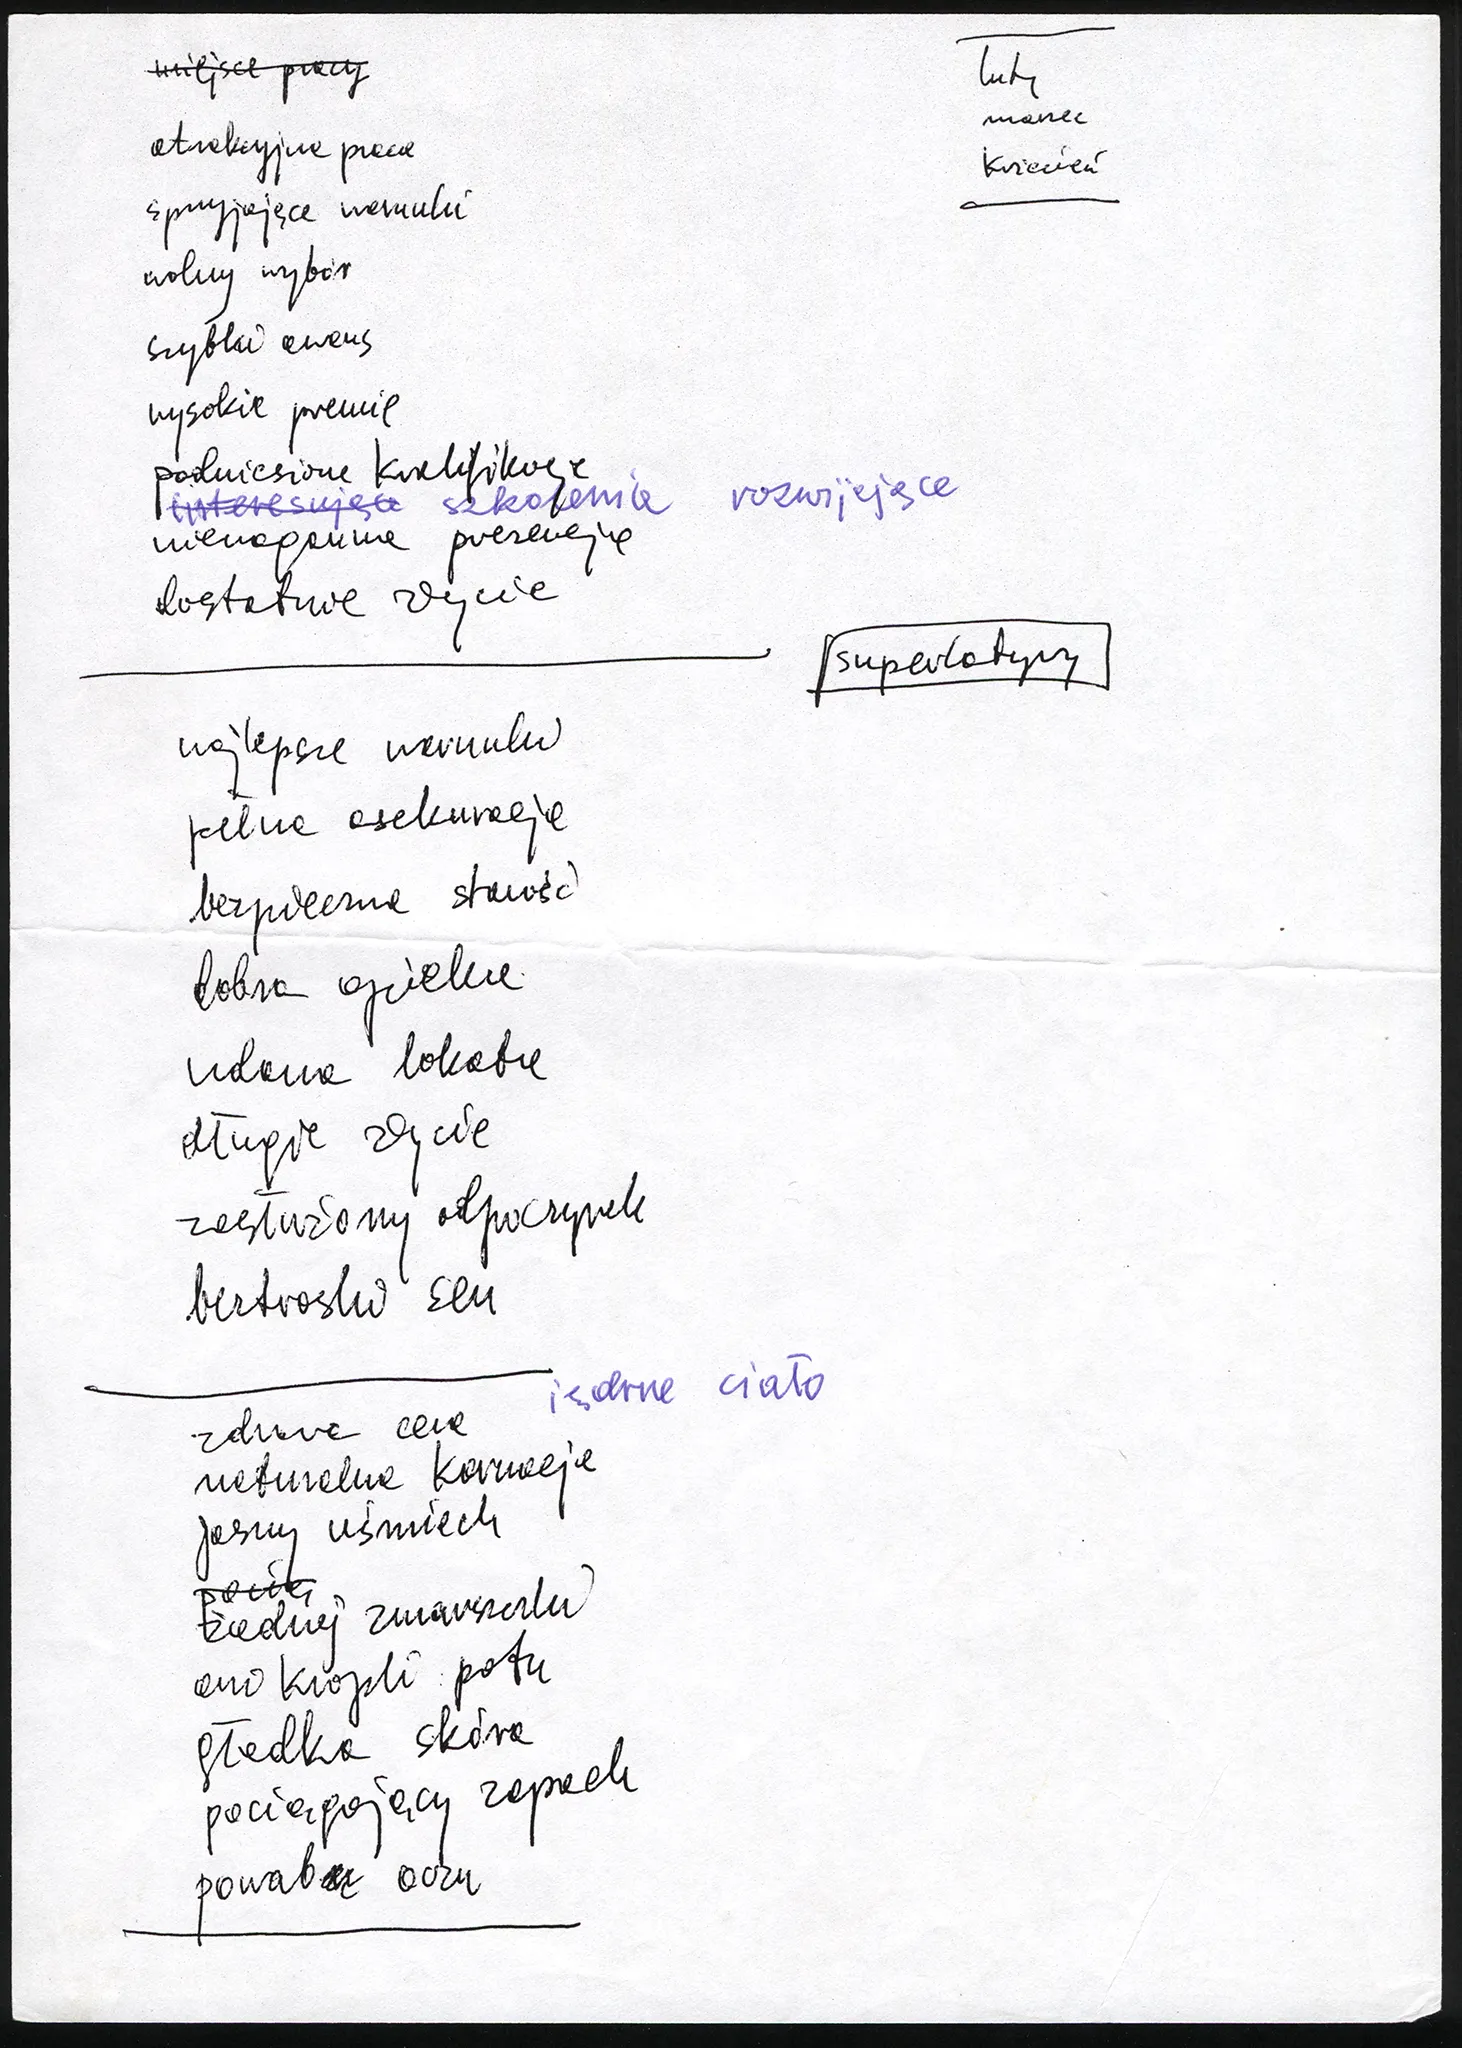 miejsce pracy
luty
marzec
kwiecień
atrakcyjna praca
sprzyjające warunki
wolny wybór
szybki awans
wysokie premie
podniesione kwalifikacje
interesujące szkolenia rozwijające
nienaganna prezencja
dostatnie życie
superlatywy
najlepsze warunki
pełna asekuracja
bezpieczna starość
dobra opieka
udana lokata
długie życie
zasłużony odpoczynek
beztroski sen
jędrne ciało
zdrowa cera
naturalna karnacja
jasny uśmiech
żadnej zmarszczki
ani kropli potu
gładka skóra
pociągający zapach
powab oczu